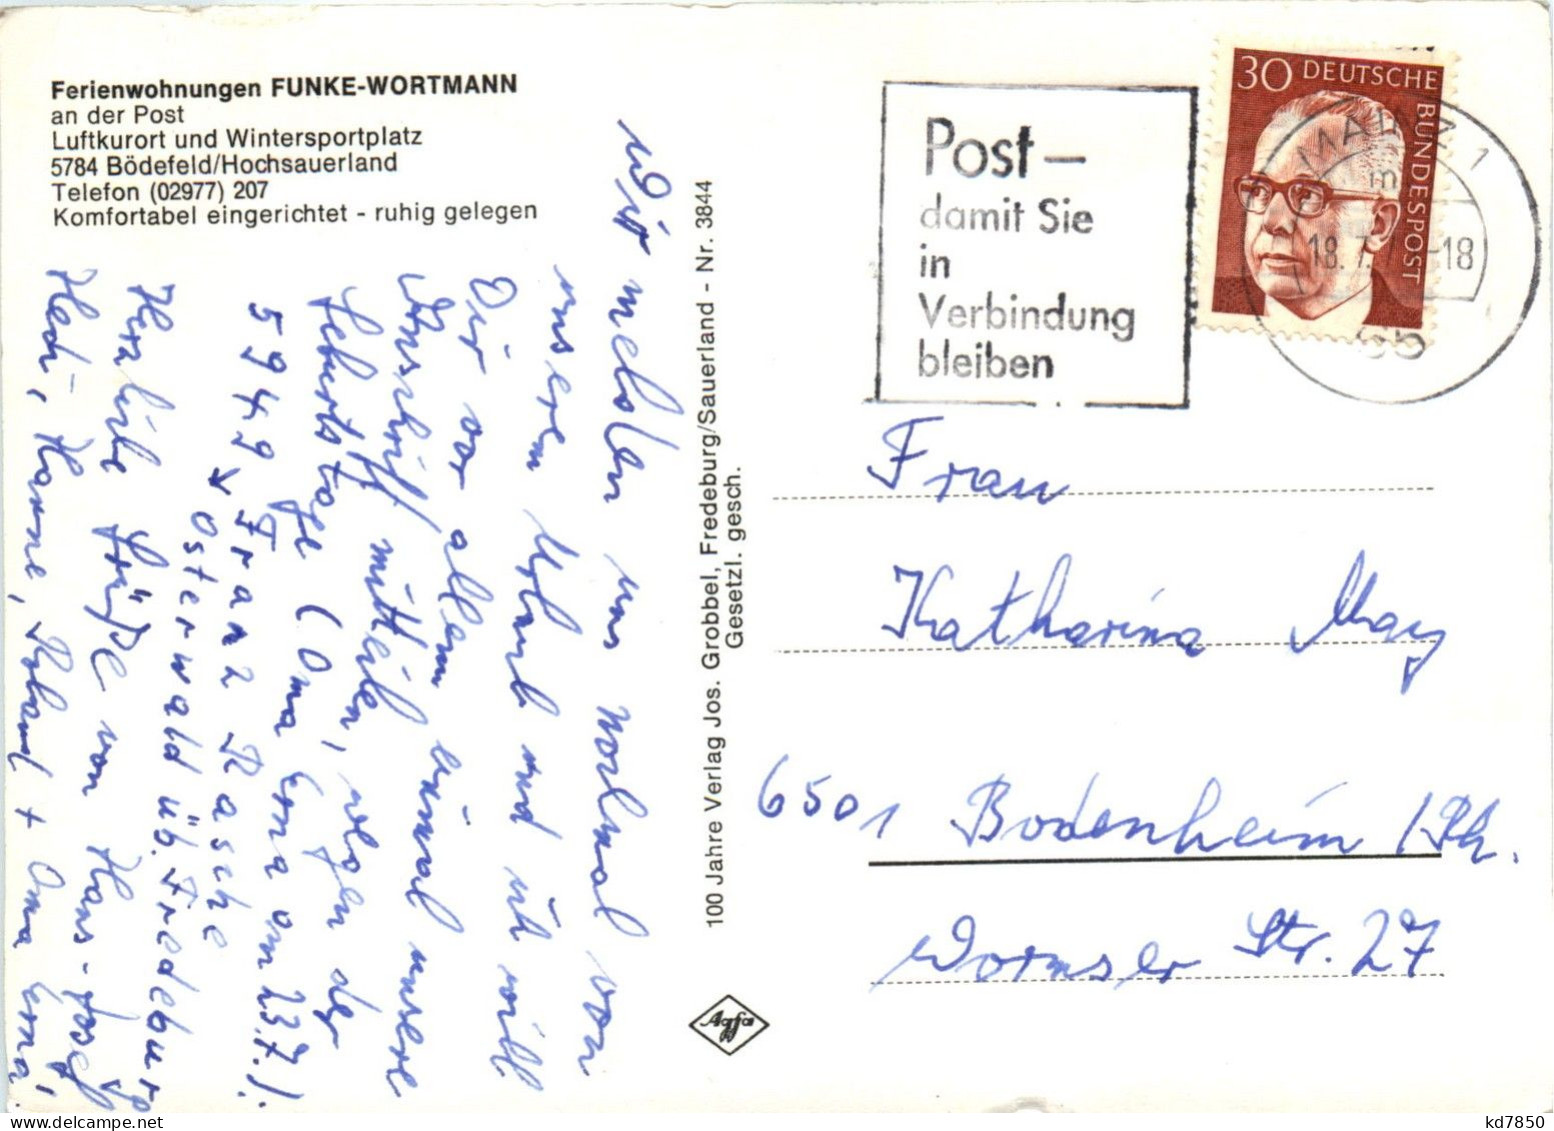 Ferienwohnungen FUNKE-WORTMANN
an der Post
Luftkurort und Wintersportplatz
5784 Bödefeld/Hochsauerland
Telefon (02977) 207
Komfortabel eingerichtet - ruhig gelegen
Wir melden uns nochmal von
unserem Urlaub und ich will
Dir vor allem einmal unsere
Anschrift mitteilen, wegen der
Geburtstage (Oma Erna am 23.7.).
5949 Franz Rasche
Osterwald üb. Fredeburg
Herzliche Grüße von Hans-Josef
Hedi, Hanne, Roland + Oma Erna.
100 Jahre Verlag Jos. Grobbel, Fredeburg/Sauerland - Nr. 3844
Gesetzl. gesch.
Agfa
Post –
damit Sie
in
Verbindung
bleiben
30 DEUTSCHE BUNDESPOST
MAINZ 1
m
18. 7. -18
65
Frau
Katharina May
6501 Bodenheim /Rh.
Wormser Str. 27
kd7850